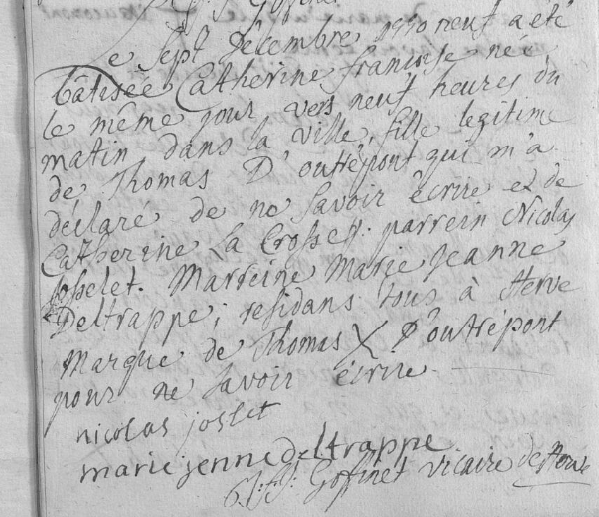 e sept decembre 1770 neuf a eté
bâtisée Catherine francoise née
le même jour vers neuf heures du
matin dans la ville, fille legitime
de Thomas D'outrépont qui m'a
déclaré de ne savoir écrire et de
Catherine La Crosse. parrein Nicolas
josselet. Marreine Marie Jeanne
Deltrappe; residans tous à Herve
Marque de Thomas X D'outrépont
pour ne savoir écrire
nicolas joslet
marie jenne deltrappe
Goffinet vicaire de Herve